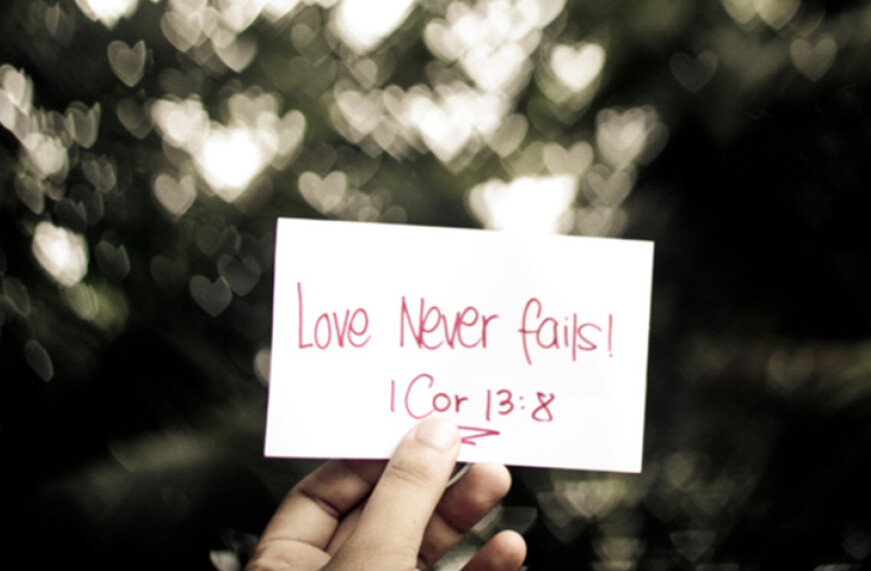 Love Never fails!
1 Cor 13:8